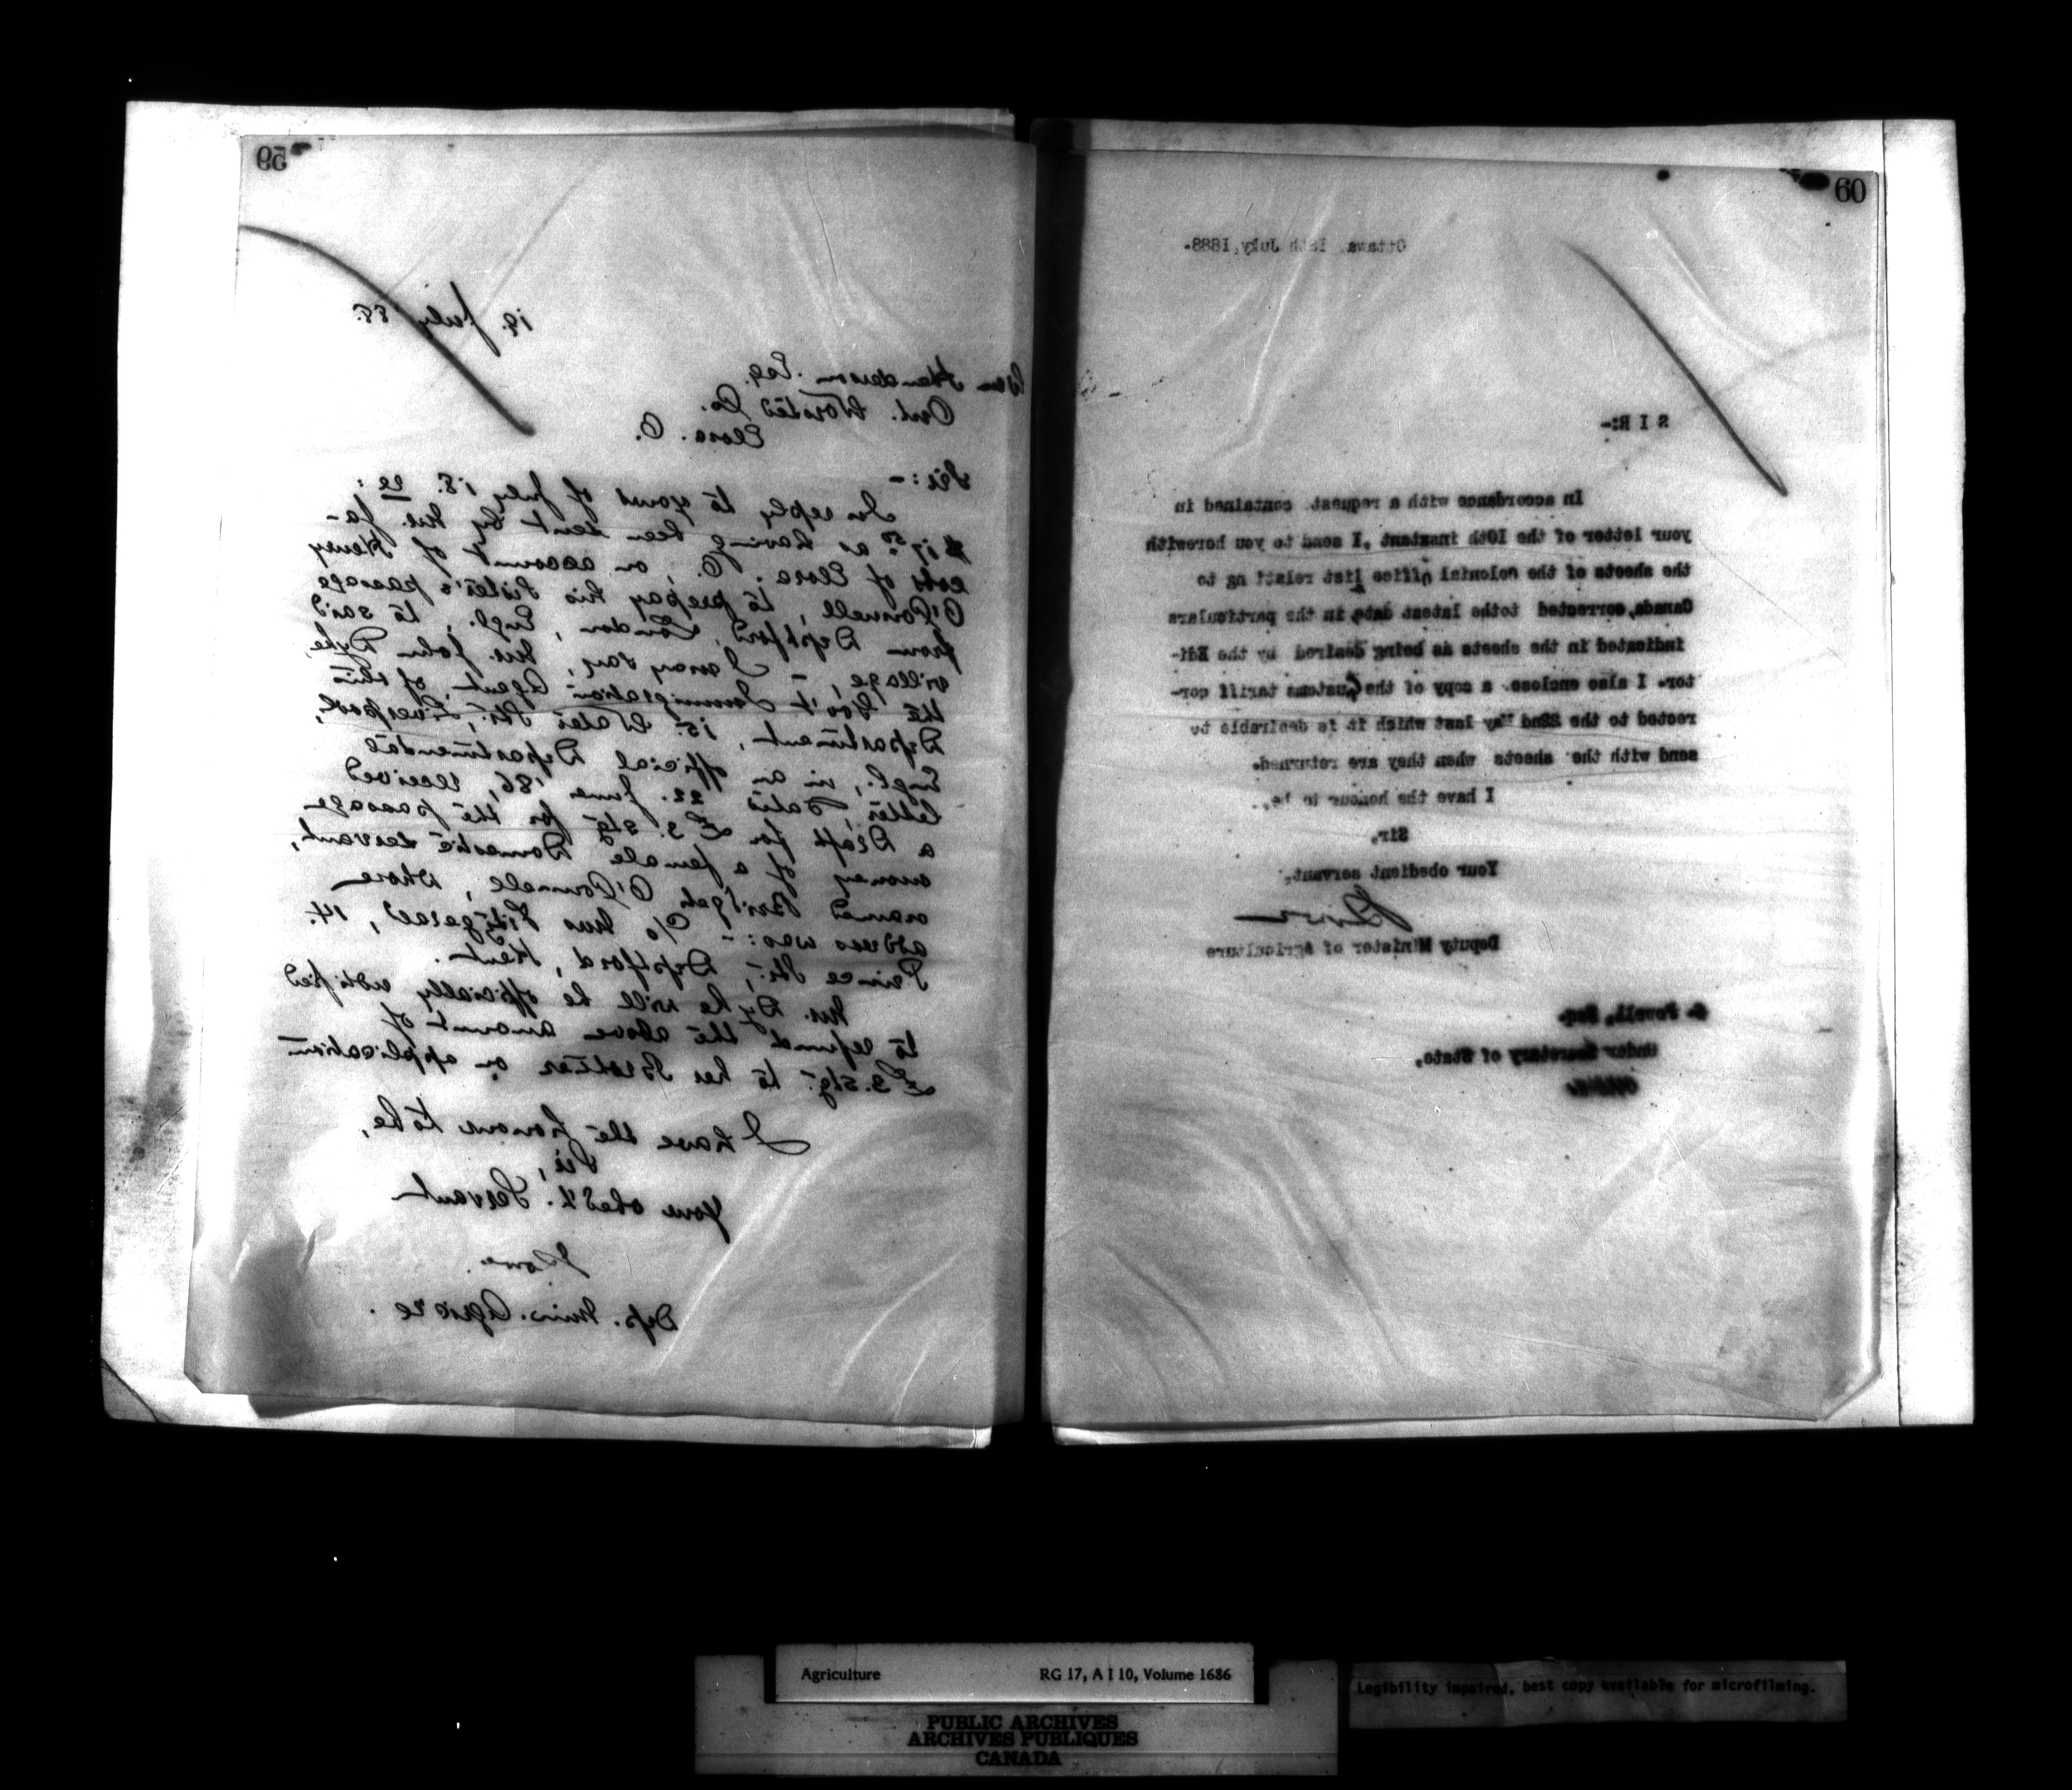 59
19. July '88.
Wm Henderson Esq.
Ont. Worsted Co.
Elora. O.
Sir:-
In reply to yours of July 18. re:
$17.50 as having been sent by Mr. Ja-
cobs of Elora. O., on account of Henry
O'Connell, to prepay his sister's passage
from Deptford, London, Engl., to said
village, - I may say, Mr. John Dyke,
the Gov't Immigration Agent, of this
Department, 15. Water Str., Liverpool,
Engl., in an official Departmental
letter, dated 22. June '86, received
a Draft for £3. Stg. for the passage
money of a female Domestic servant,
named Bridget O'Connell, whose
address was:- c/o Mrs Fitzgerald, 14.
Prince Str., Deptford, Kent.
Mr. Dyke will be officially notified
to refund the above amount of
£3. Stg. to her Brother on application
I have the honour to be,
Sir,
Your obed't. Servant
Lowe.
Dep. Min. Agric're.
60
Ottawa, 18th July, 1888.
S I R:-
In accordance with a request contained in
your letter of the 10th instant, I send to you herewith
the sheets of the Colonial office list relating to
Canada, corrected tothe latest date, in the particulars
indicated in the sheets as being desired by the Edi-
tor. I also enclose a copy of the Customs tariff cor-
rected to the 22nd May last which it is desirable to
send with the sheets when they are returned.
I have the honour to be,
Sir,
Your obedient servant,
Lowe
Deputy Minister of Agriculture
Powell, Esq.
Under Secretary of State,
Agriculture RG 17, A I 10, Volume 1686
PUBLIC ARCHIVES
ARCHIVES PUBLIQUES
CANADA
Legibility impaired, best copy available for microfilming.